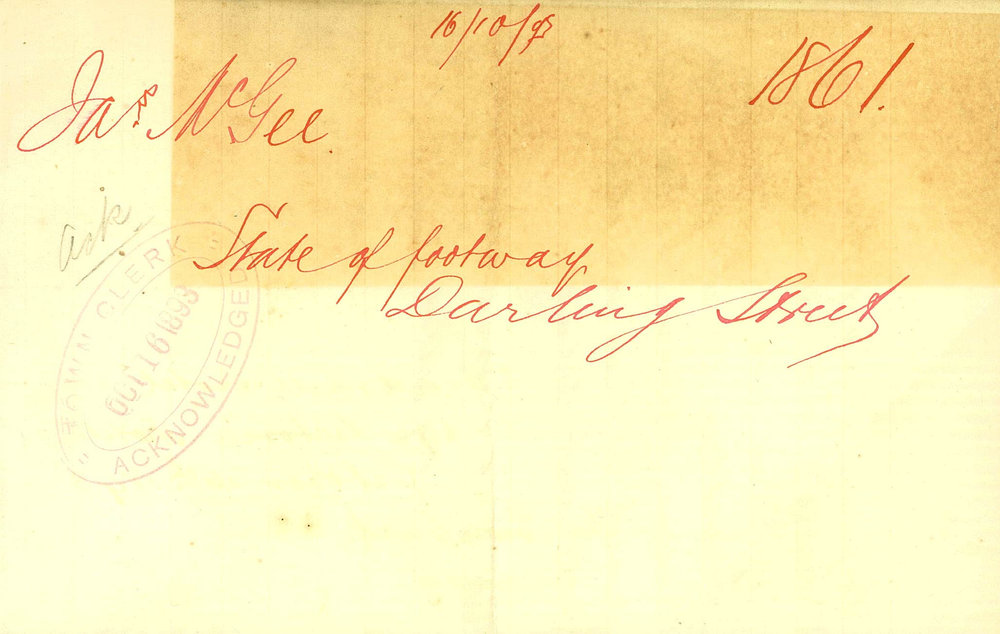 16/10/93
1861.
Jas McGee.
Ack
State of footway
Darling Street
TOWN CLERK
OCT 16 1893
ACKNOWLEDGED